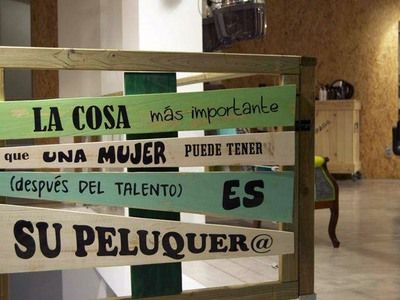 LA COSA más importante
que UNA MUJER PUEDE TENER
(después DEL TALENTO) ES
SU PELUQUER@